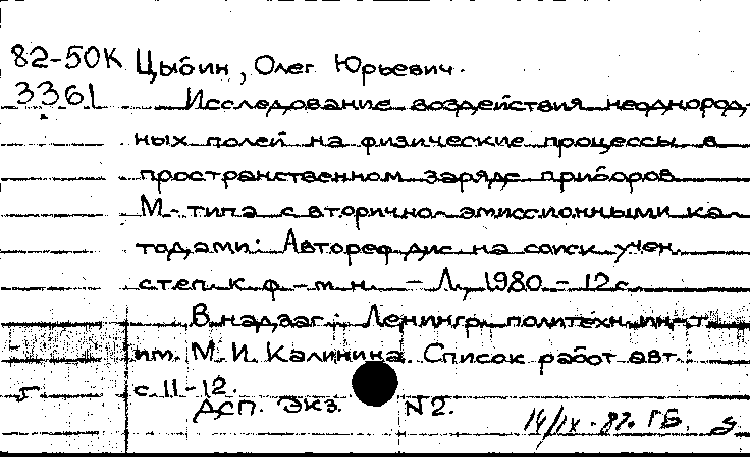 82-50К Цыбин, Олег Юрьевич.
3361 Исследование воздействия неоднород,
ных полей на физические процессы в
пространственном заряде приборов
М-типа с вторично-эмиссионными ка-
тодами: Автореф дис на соиск учен.
степ. к ф-т н. - Л., 1980 - 12 с.
В надзаг.: Ленингр. политехн ин-т
им. М. И. Калинина. Список работ авт.:
с. 11-12.
ДСП. Экз. N2.
14/IX-87. ГБ.